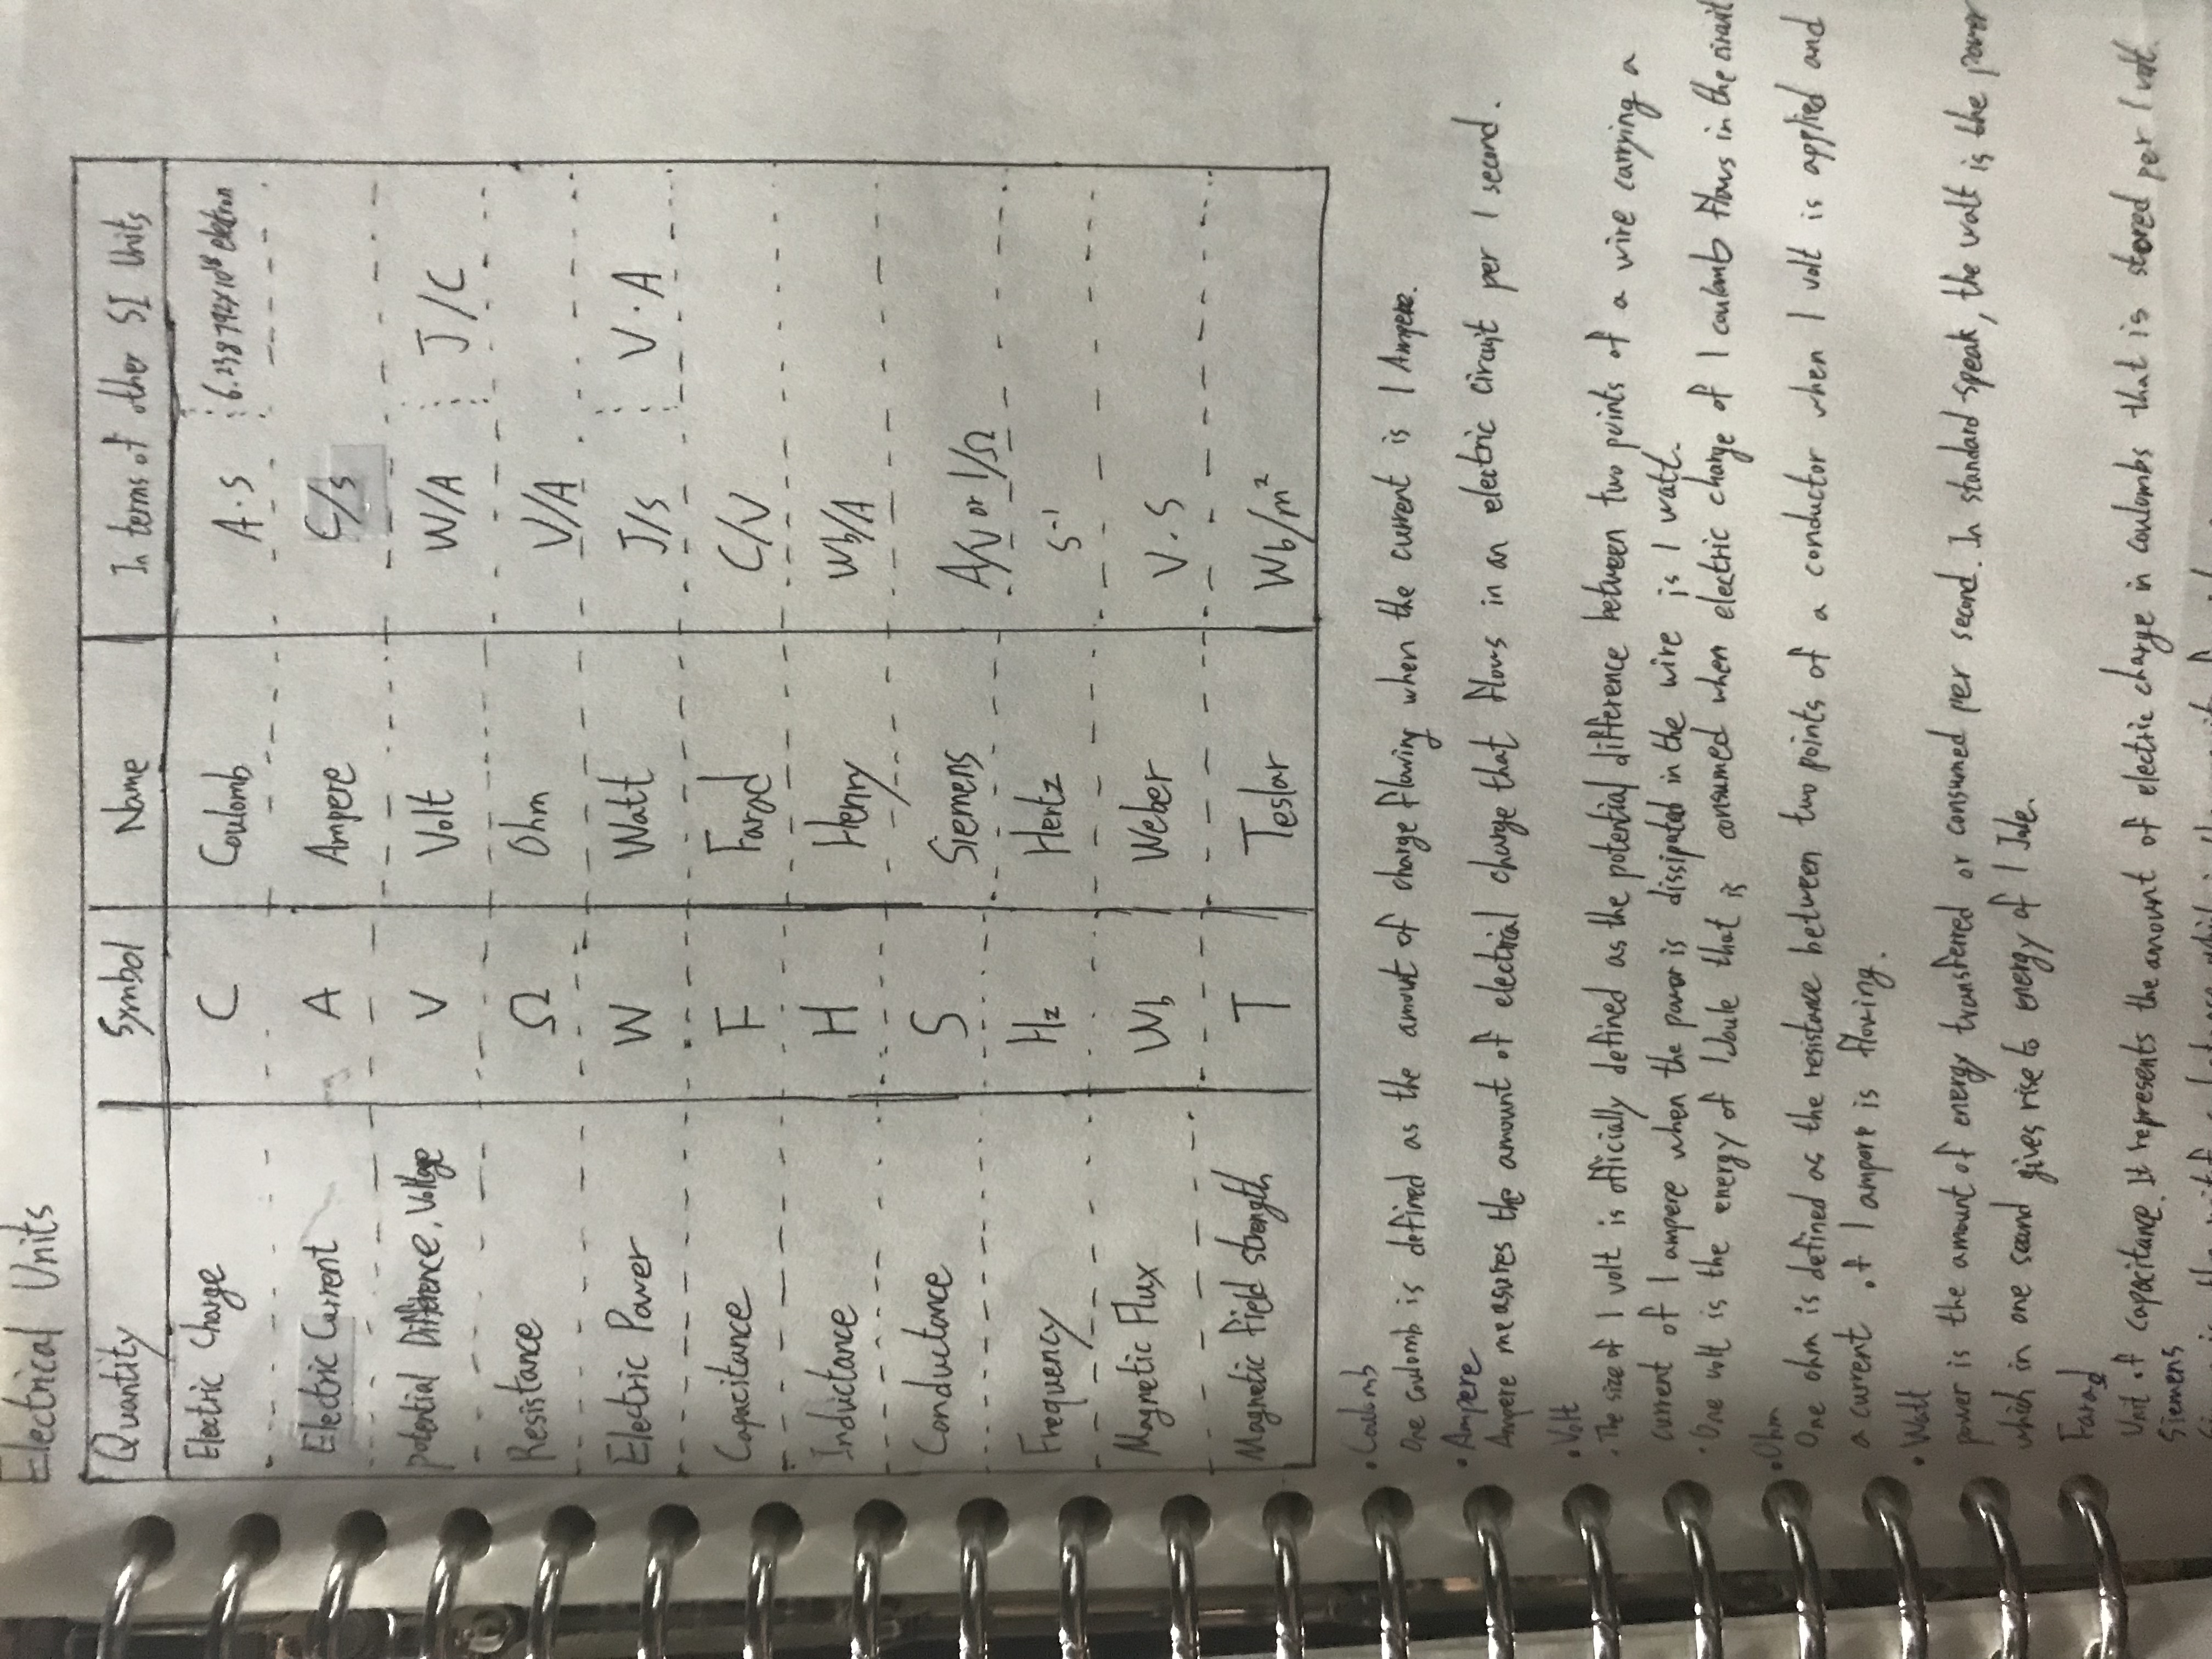 Electrical Units
Quantity Symbol Name In terms of other SI Units
Electric Charge C Coulomb A·S 6.238792x10¹⁸ electron
Electric Current A Ampere C/s
potential Difference, Voltage V Volt W/A J/C
Resistance Ω Ohm V/A
Electric Power W Watt J/s V·A
Capacitance F Farad C/V
Inductance H Henry Wb/A
Conductance S Siemens A/V or 1/Ω
Frequency Hz Hertz S⁻¹
Magnetic Flux Wb Weber V·S
Magnetic field strength T Teslar Wb/m²
·Coulomb
One coulomb is defined as the amount of charge flowing when the current is 1 Ampere.
·Ampere
Ampere measures the amount of electrical charge that flows in an electric circuit per 1 second.
·Volt
·The size of 1 volt is officially defined as the potential difference between two points of a wire carrying a
current of 1 ampere when the power is dissipated in the wire is 1 watt.
·One volt is the energy of 1Joule that is consumed when electric charge of 1 coulomb flows in the circuit
·Ohm
One ohm is defined as the resistance between two points of a conductor when 1 volt is applied and
a current of 1 ampere is flowing.
·Watt
power is the amount of energy transferred or consumed per second. In standard speak, the watt is the power
which in one second gives rise to energy of 1 Jule.
Farad
Unit of capacitance. It represents the amount of electric charge in coulombs that is stored per 1 volt.
Siemens